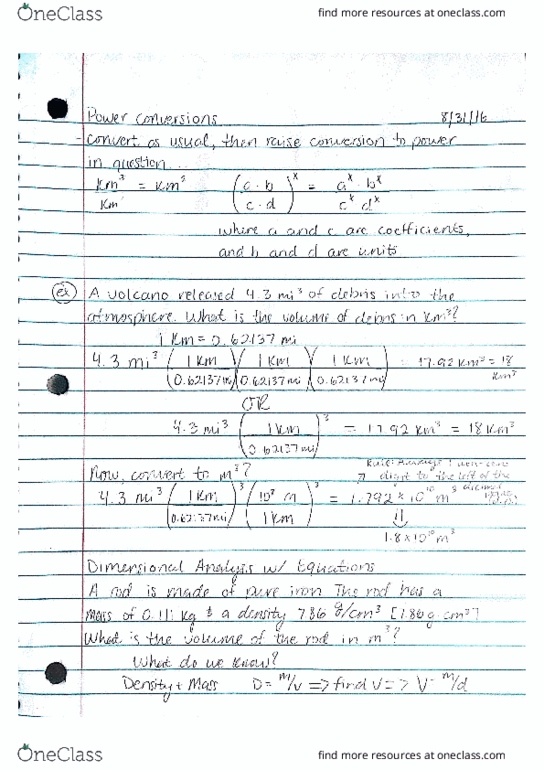 OneClass find more resources at oneclass.com
Power Conversions 8/31/16
- Convert as usual, then raise conversion to power
in question...
Km³/Km = Km² (c · b / c · d)ˣ = aˣ · bˣ / cˣ dˣ
where a and c are coefficients,
and b and d are units
ex A volcano released 4.3 mi³ of debris into the
atmosphere. What is the volume of debris in Km³?
1 Km = 0.62137 mi
4.3 mi³ (1 Km / 0.62137 mi)(1 Km / 0.62137 mi)(1 Km / 0.62137 mi) = 17.92 Km³ = 18 Km³
OR
4.3 mi³ (1 Km / 0.62137 mi)³ = 17.92 Km³ = 18 Km³
Now, convert to m³? Rule: Always 1 non-zero
digit to the left of the
4.3 mi³ (1 Km / 0.62137 mi)³ (10³ m / 1 Km)³ = 1.792 * 10¹⁰ m³ decimal
⇓
1.8 x 10¹⁰ m³
Dimensional Analysis w/ Equations
A rod is made of pure iron The rod has a
mass of 0.111 Kg & a density 786 g/cm³ [786 g · cm³]
What is the volume of the rod in m³?
What do we know?
Density + Mass D = m/v => find V => V - m/d
OneClass find more resources at oneclass.com